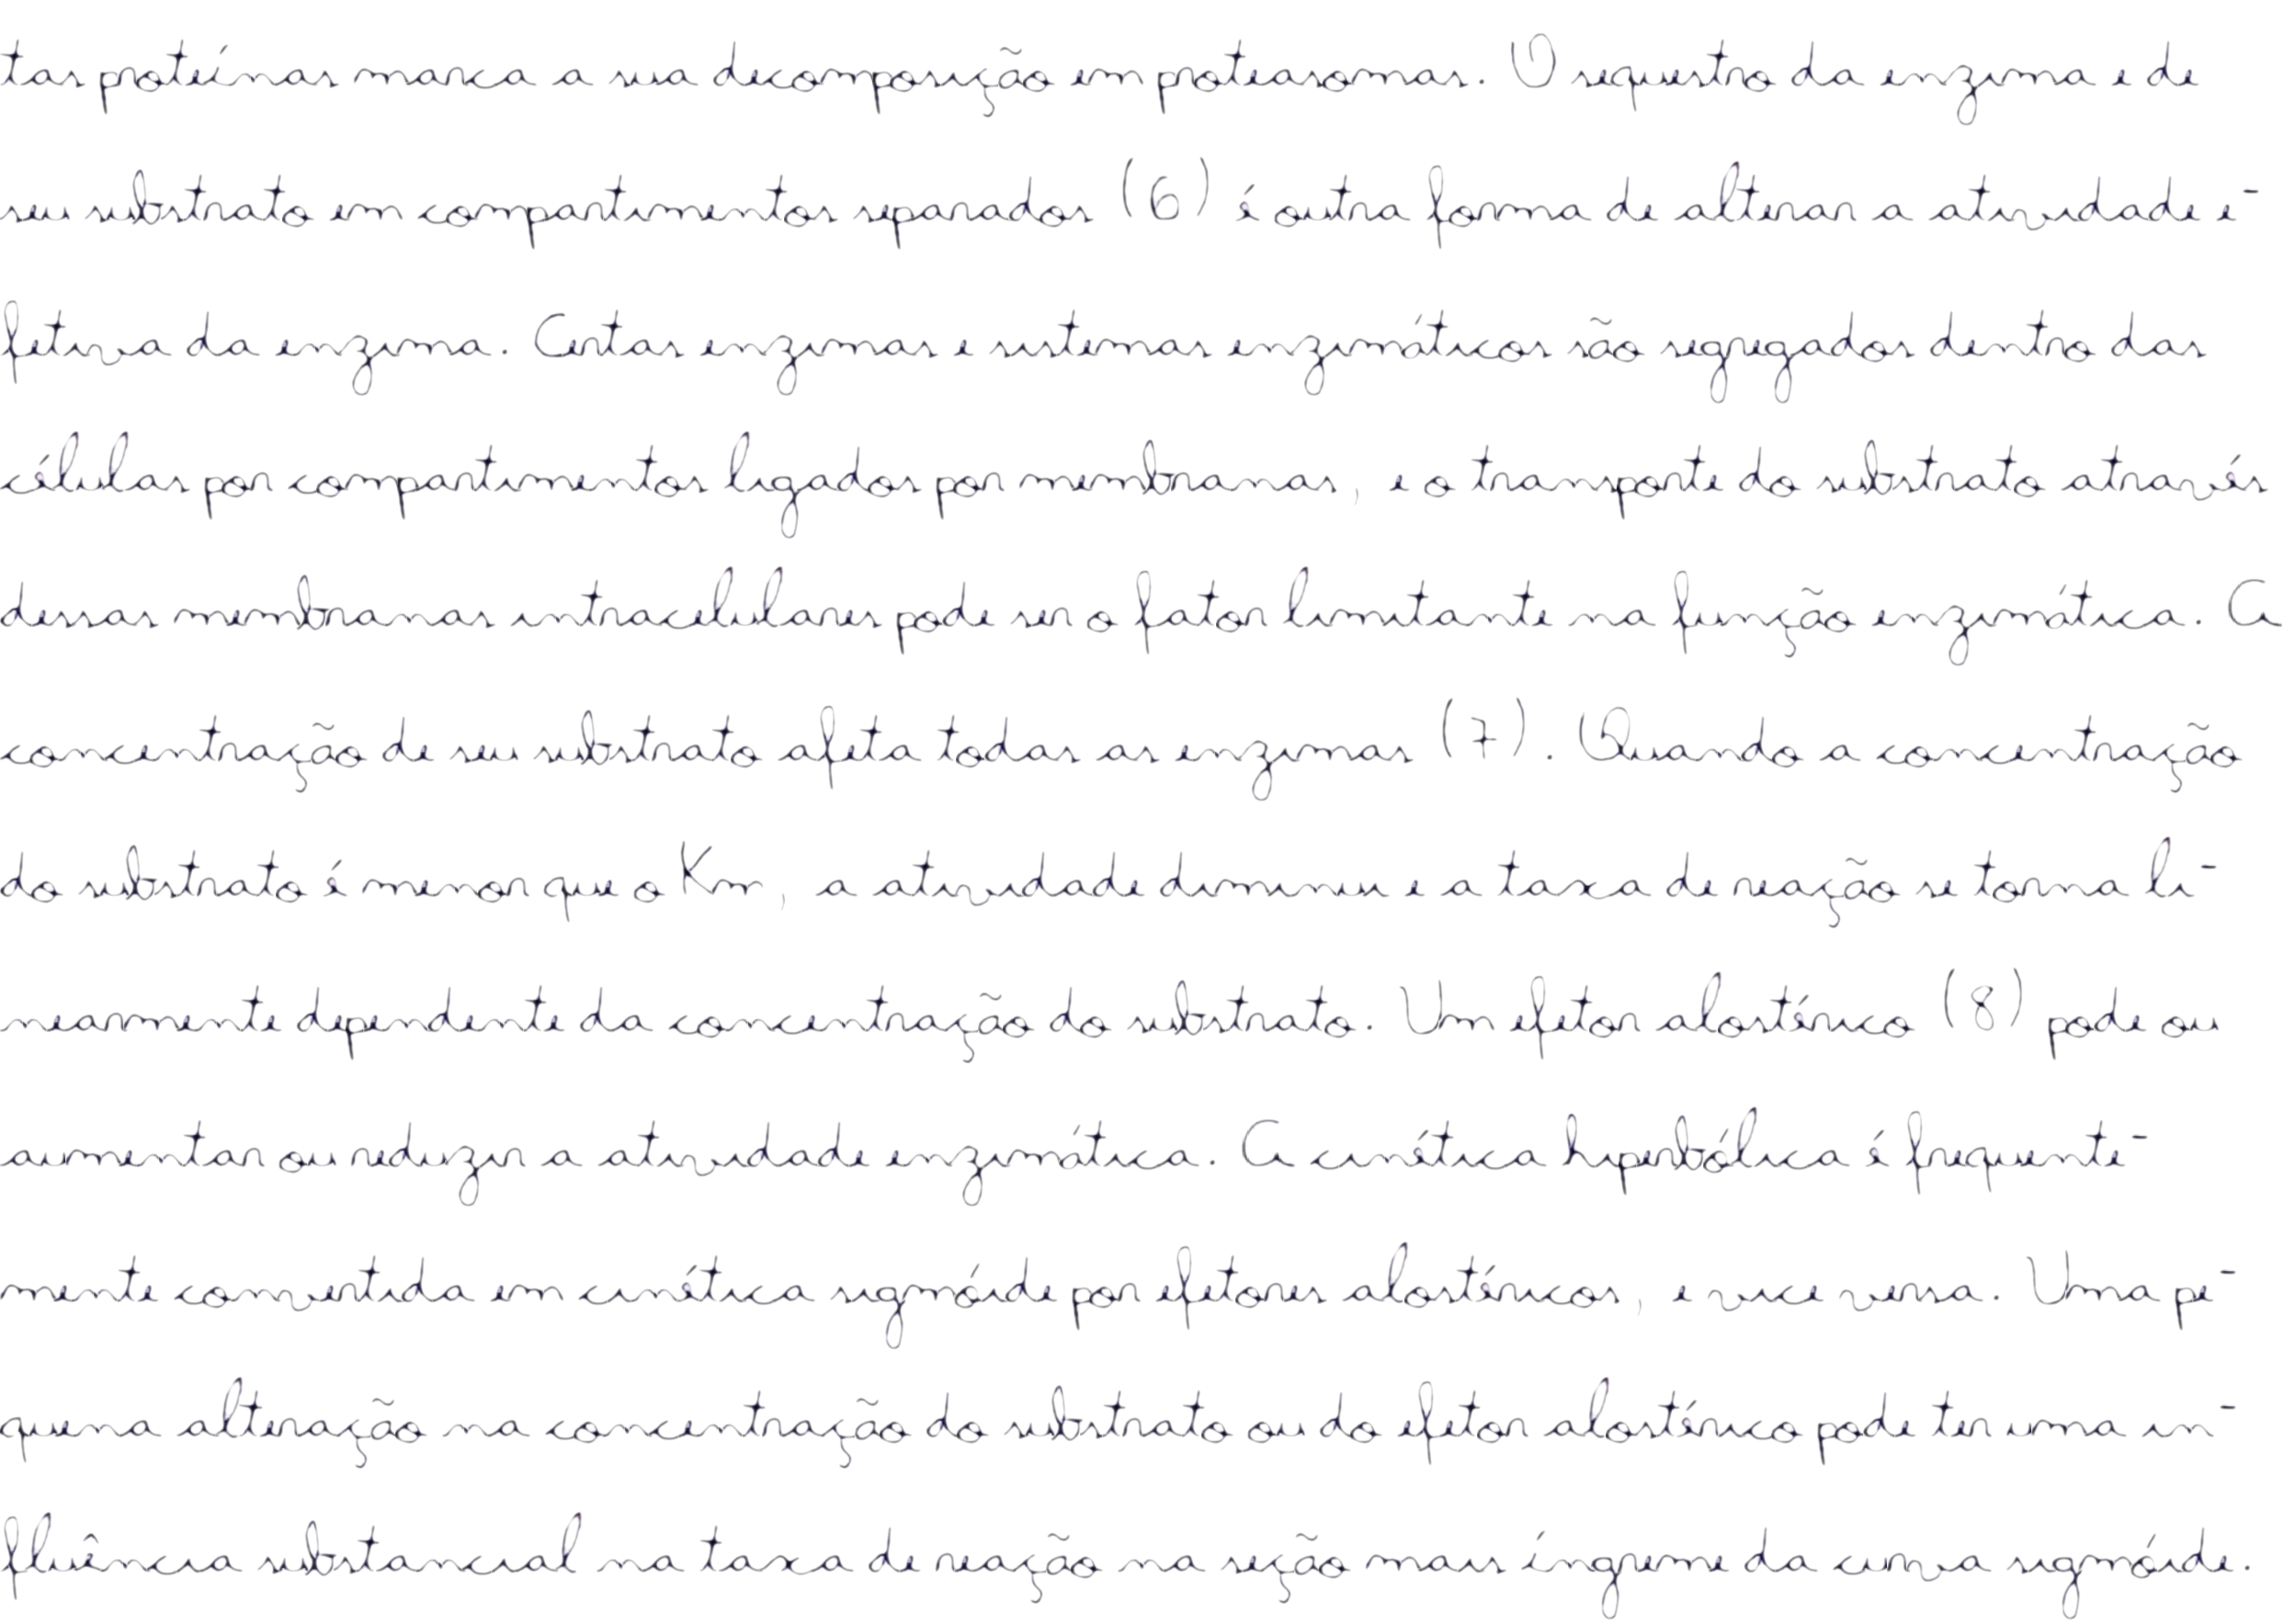 tas proteínas marca a sua decomposição em proteasomas. O sequestro da enzima e de
seu substrato em compartimentos separados (6) é outra forma de alterar a atividade e-
fetiva da enzima. Certas enzimas e sistemas enzimáticos são segregados dentro das
células por compartimentos ligados por membranas, e o transporte do substrato através
dessas membranas intracelulares pode ser o fator limitante na função enzimática. A
concentração de seu substrato afeta todas as enzimas (7). Quando a concentração
do substrato é menor que o Km, a atividade diminui e a taxa de reação se torna li-
nearmente dependente da concentração do substrato. Um efetor alostérico (8) pode ou
aumentar ou reduzir a atividade enzimática. A cinética hiperbólica é frequente-
mente convertida em cinética sigmóide por efetores alostéricos, e vice versa. Uma pe-
quena alteração na concentração do substrato ou do efetor alostérico pode ter uma in-
fluência substancial na taxa de reação na seção mais íngreme da curva sigmóide.